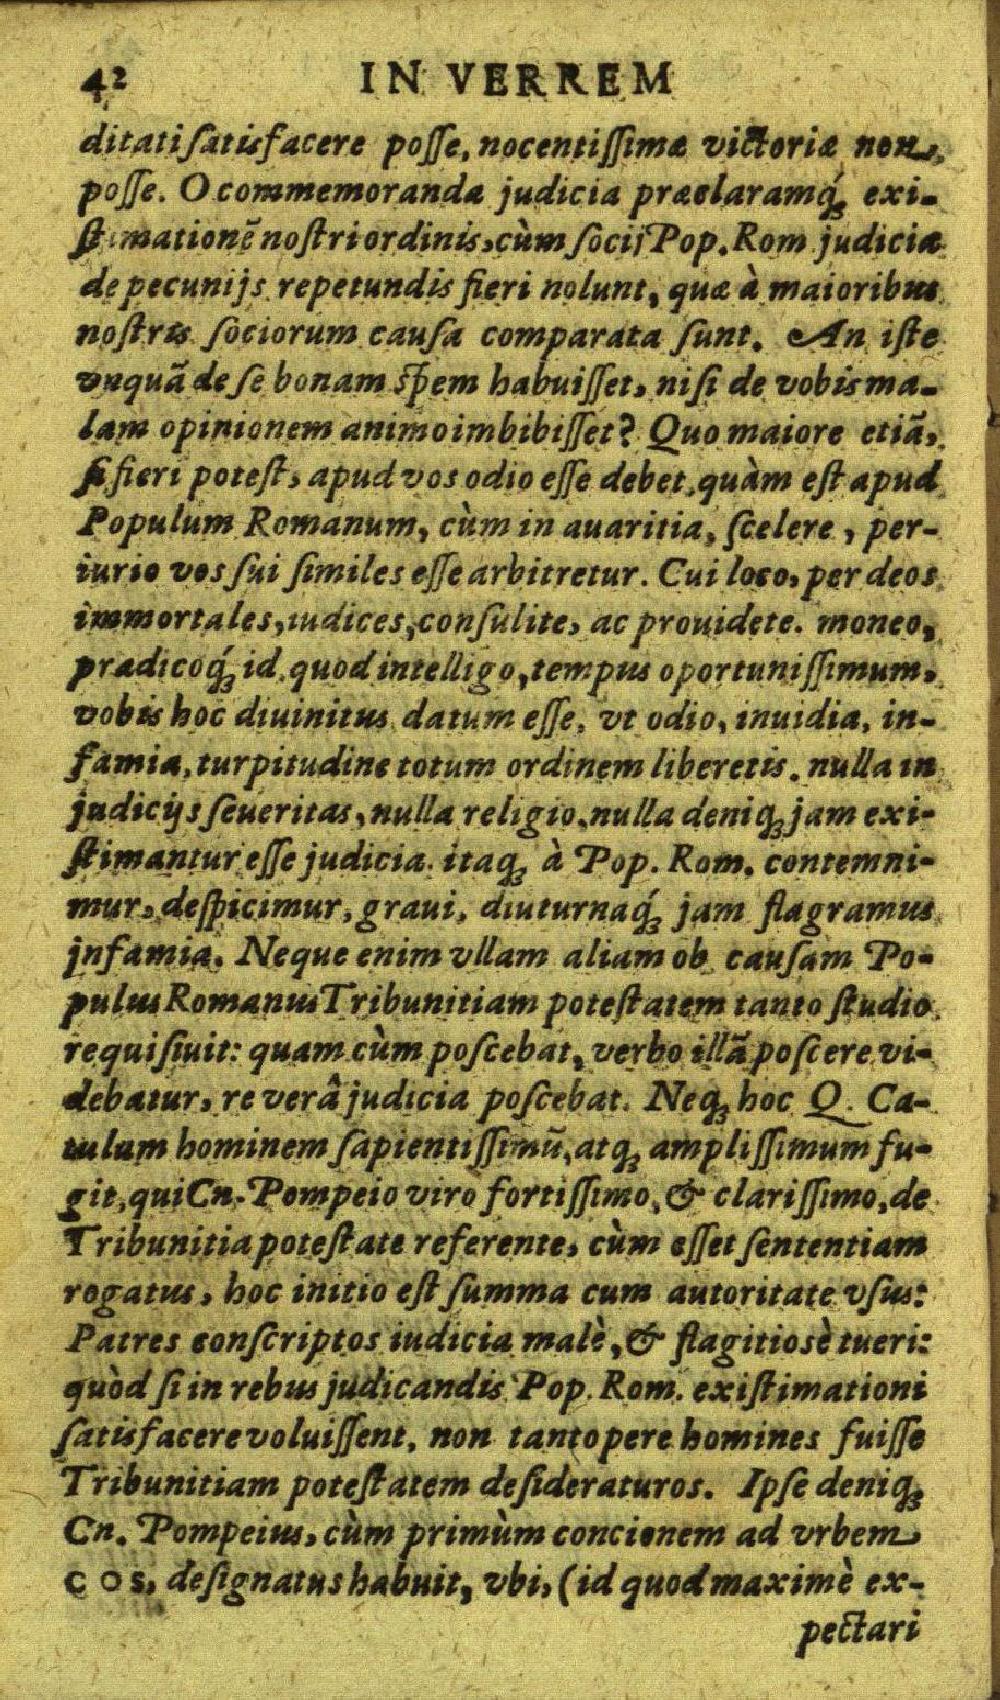 42 IN VERREM
ditati ſatisfacere poſſe, nocentiſſimæ victoriæ non,
poſſe. O commemoranda judicia præclaramq́ꝫ exi-
ſtimationẽ noſtri ordinis, cùm ſocij Pop. Rom judicia
de pecunijs repetundis fieri nolunt, quæ à maioribus
noſtris ſociorum cauſa comparata ſunt. An iſte
vnquã de ſe bonam ſpem habuiſſet, niſi de vobis ma-
lam opinionem animo imbibiſſet? Quo maiore etiã,
ſi fieri poteſt, apud vos odio eſſe debet, quàm eſt apud
Populum Romanum, cùm in auaritia, ſcelere, per-
iurio vos ſui ſimiles eſſe arbitretur. Cui loco, per deos
immortales, iudices, conſulite, ac prouidete. moneo,
prædicoq́ꝫ id, quod intelligo, tempus oportuniſſimum,
vobis hoc diuinitus datum eſſe, vt odio, inuidia, in-
famia, turpitudine totum ordinem liberetis. nulla in
judicijs ſeueritas, nulla religio, nulla deniqꝫ jam exi-
ſtimantur eſſe judicia. itaqꝫ à Pop. Rom. contemni-
mur, deſpicimur, graui, diuturnaq́ꝫ jam flagramus
jnfamia. Neque enim vllam aliam ob cauſam Po-
pulus Romanus Tribunitiam poteſtatem tanto ſtudio
requiſiuit: quam cùm poſcebat, verbo illã poſcere vi-
debatur, re verâ judicia poſcebat. Neqꝫ hoc Q. Ca-
tulum hominem ſapientiſſimũ, atqꝫ ampliſſimum fu-
git, qui Cn. Pompeio viro fortiſſimo, & clariſſimo, de
Tribunitia poteſtate referente, cùm eſſet ſententiam
rogatus, hoc initio eſt ſumma cum autoritate vſus:
Patres conſcriptos iudicia malè, & flagitioſè tueri:
quòd ſi in rebus judicandis Pop. Rom. exiſtimationi
ſatisfacere voluiſſent, non tantopere homines fuiſſe
Tribunitiam poteſtatem deſideraturos. Ipſe deniqꝫ
Cn. Pompeius, cùm primùm concionem ad vrbem
COS, deſignatus habuit, vbi, (id quod maximè ex-
pectari